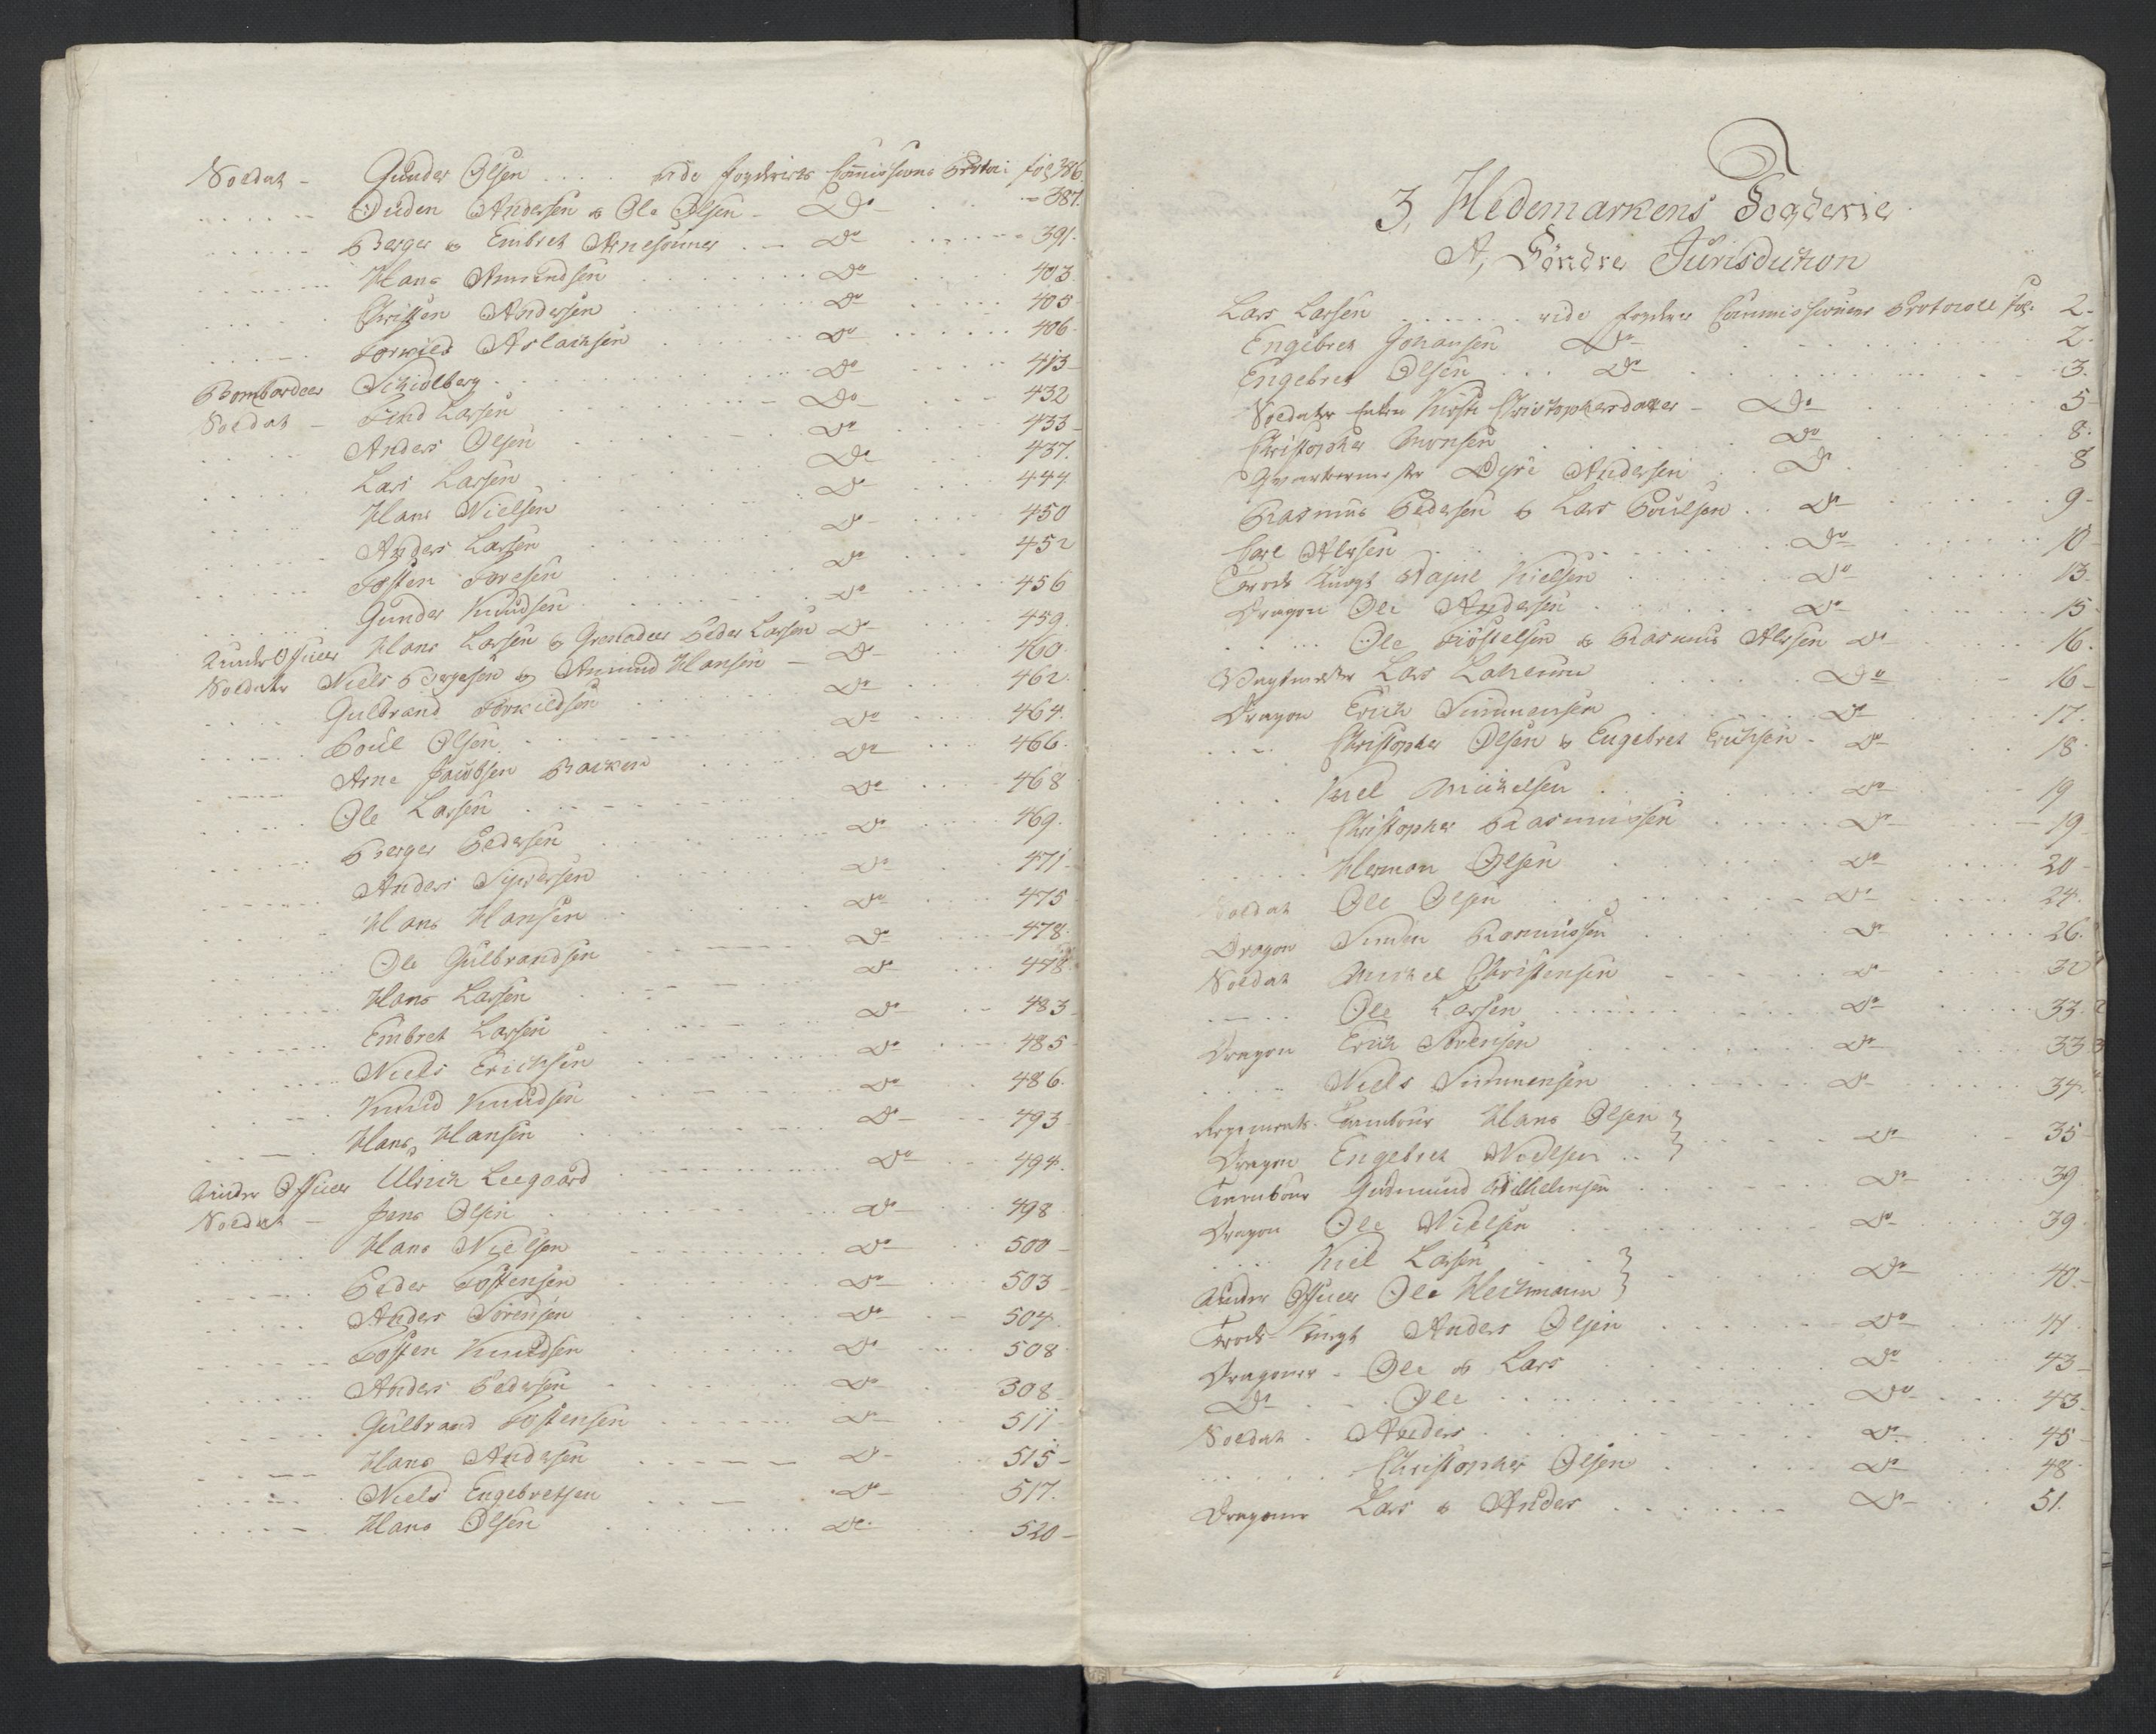 Soldat - Gunder Olsen .... vide Fogderiets Commissions Protoc: fol 386.
Ouden Andersen & Ole Olsen - Do - 387.
Berger & Embret Arnesønner . - Do 391.
Hans Amundsen Do 403
Christen Andersen Do 405
Torkild Aslachsen Do 406.
Bombardeer Schiolberg Do 413
Soldat - Lars Larsen Do 432
Anders Olsen Do 433
Lars Larsen Do 437.
Hans Nielsen Do 444
Anders Larsen Do 450
Tosten Toresen Do 452
Gunder Knudsen Do 456
Under Officer Hans Larsen & Grenadeer Peder Larsen Do 459.
Soldater Niels Bergesen & Amund Hansen - Do 460.
Gulbrand Torkildsen Do 462.
Poul Olsen Do 464.
Arne Jacobsen Backen Do 466.
Ole Larsen Do 468
Berger Pedersen Do 469.
Anders Siversen Do 471
Hans Hansen Do 475
Ole Gulbrandsen Do 478.
Hans Larsen Do 478
Embret Larsen Do 483
Niels Erichsen Do 485
Knud Knudsen Do 486.
Hans Hansen Do 493
Under Officer Ulrich Leegaard Do 494.
Soldat - Jens Olsen Do 498
Hans Nielsen Do 500
Peder Tostensen Do 503
Anders Sørensen Do 504
Tosten Knudsen Do 508
Anders Pedersen Do 308
Gulbrand Tostensen Do 511
Hans Andersen Do 515
Niels Engebretsen Do 517.
Hans Olsen Do 520
3, Hedemarkens Fogderie
A, Søndre Jurisdiction
Lars Larsen ...... vide Fogder: Commissionens Protocoll fol. 2.
Engebret Johansen Do 2.
Engebret Olsen ... Do 3.
Soldater Enken Kirsti Christophersdatter - Do 5
Christopher Monsen Do 8.
Qvarteermester Dyre Andersen Do 8
Rasmus Pedersen & Lars Poulsen .. Do 9
Carl Alexsen Do 10
Trods Knegt Pajul Nielsen Do 13.
Dragon Ole Andersen Do 15
Ole Kiøstelsen & Rasmus Alexsen Do 16.
Vagtmester Lars Do 16
Dragon Erich Simmensen Do 17.
Christopher Olsen & Engebret Erichsen - Do 18
Kiel Michelsen Do 19
Christopher Rasmussen Do 19
Herman Olsen Do 20
Soldat Ole Olsen Do 24.
Dragon Simen Rasmussen Do 26.
Soldat Michel Christensen Do 32
Ole Larsen Do 33.
Dragon Erich Sørensen Do 33
Niels Simmensen Do 34.
Regiments Tambour Hans Olsen }
Dragon Engebret Nielsen .. } Do 35
Tambour Gudmund Wilhelmsen Do 39
Dragon Ole Nielsen Do 39
Kiel Larsen }
Under Officer Ole Heckmann } Do 40.
Trods Knegt Anders Olsen Do 41
Dragoner - Ole & Lars Do 43
Do Ole Do 43
Soldat . Anders Do 45
Christopher Olsen Do 48
Dragoner Lars & Anders Do 51.